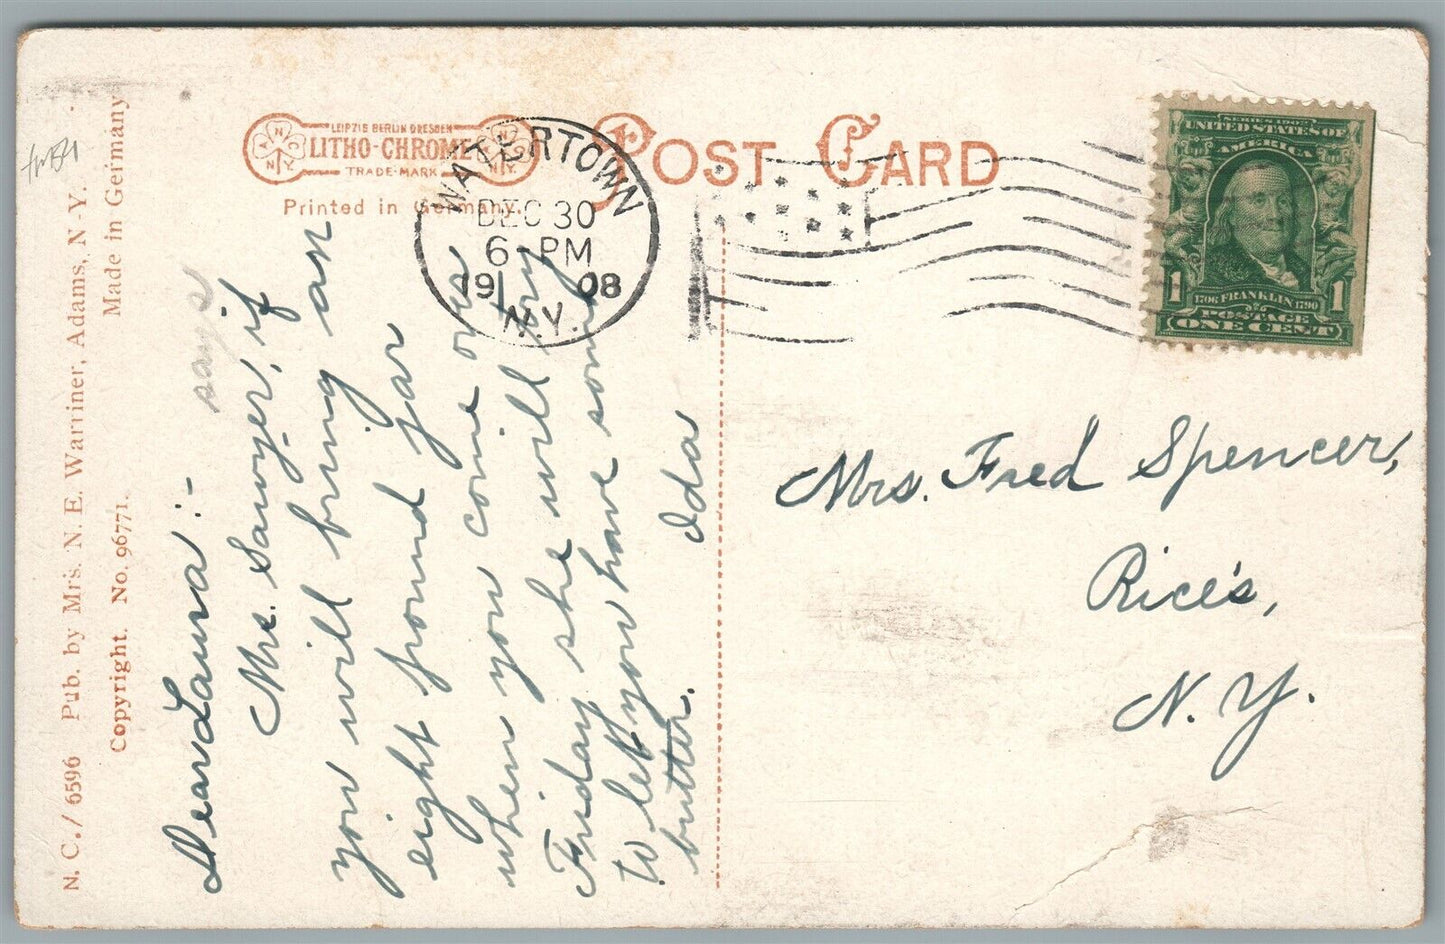 N. C./6596 Pub. by Mrs. N. E. Warriner, Adams, N-Y.
Copyright. No. 96771. Made in Germany
LEIPZIG BERLIN DRESDEN
LITHO-CHROME
TRADE-MARK
Printed in Germany.
POST CARD
WATERTOWN
DEC 30
6-PM
1908
N.Y.
SERIES 1902
UNITED STATES OF
AMERICA
1 1
1706 FRANKLIN 1790
POSTAGE
ONE CENT
says
Dear Laura:-
Mrs. Sawyer, if
you will bring an
eight pound jar
when you come on
Friday she will try
to let you have some
butter. Ida
Mrs. Fred Spencer,
Rice's,
N. Y.